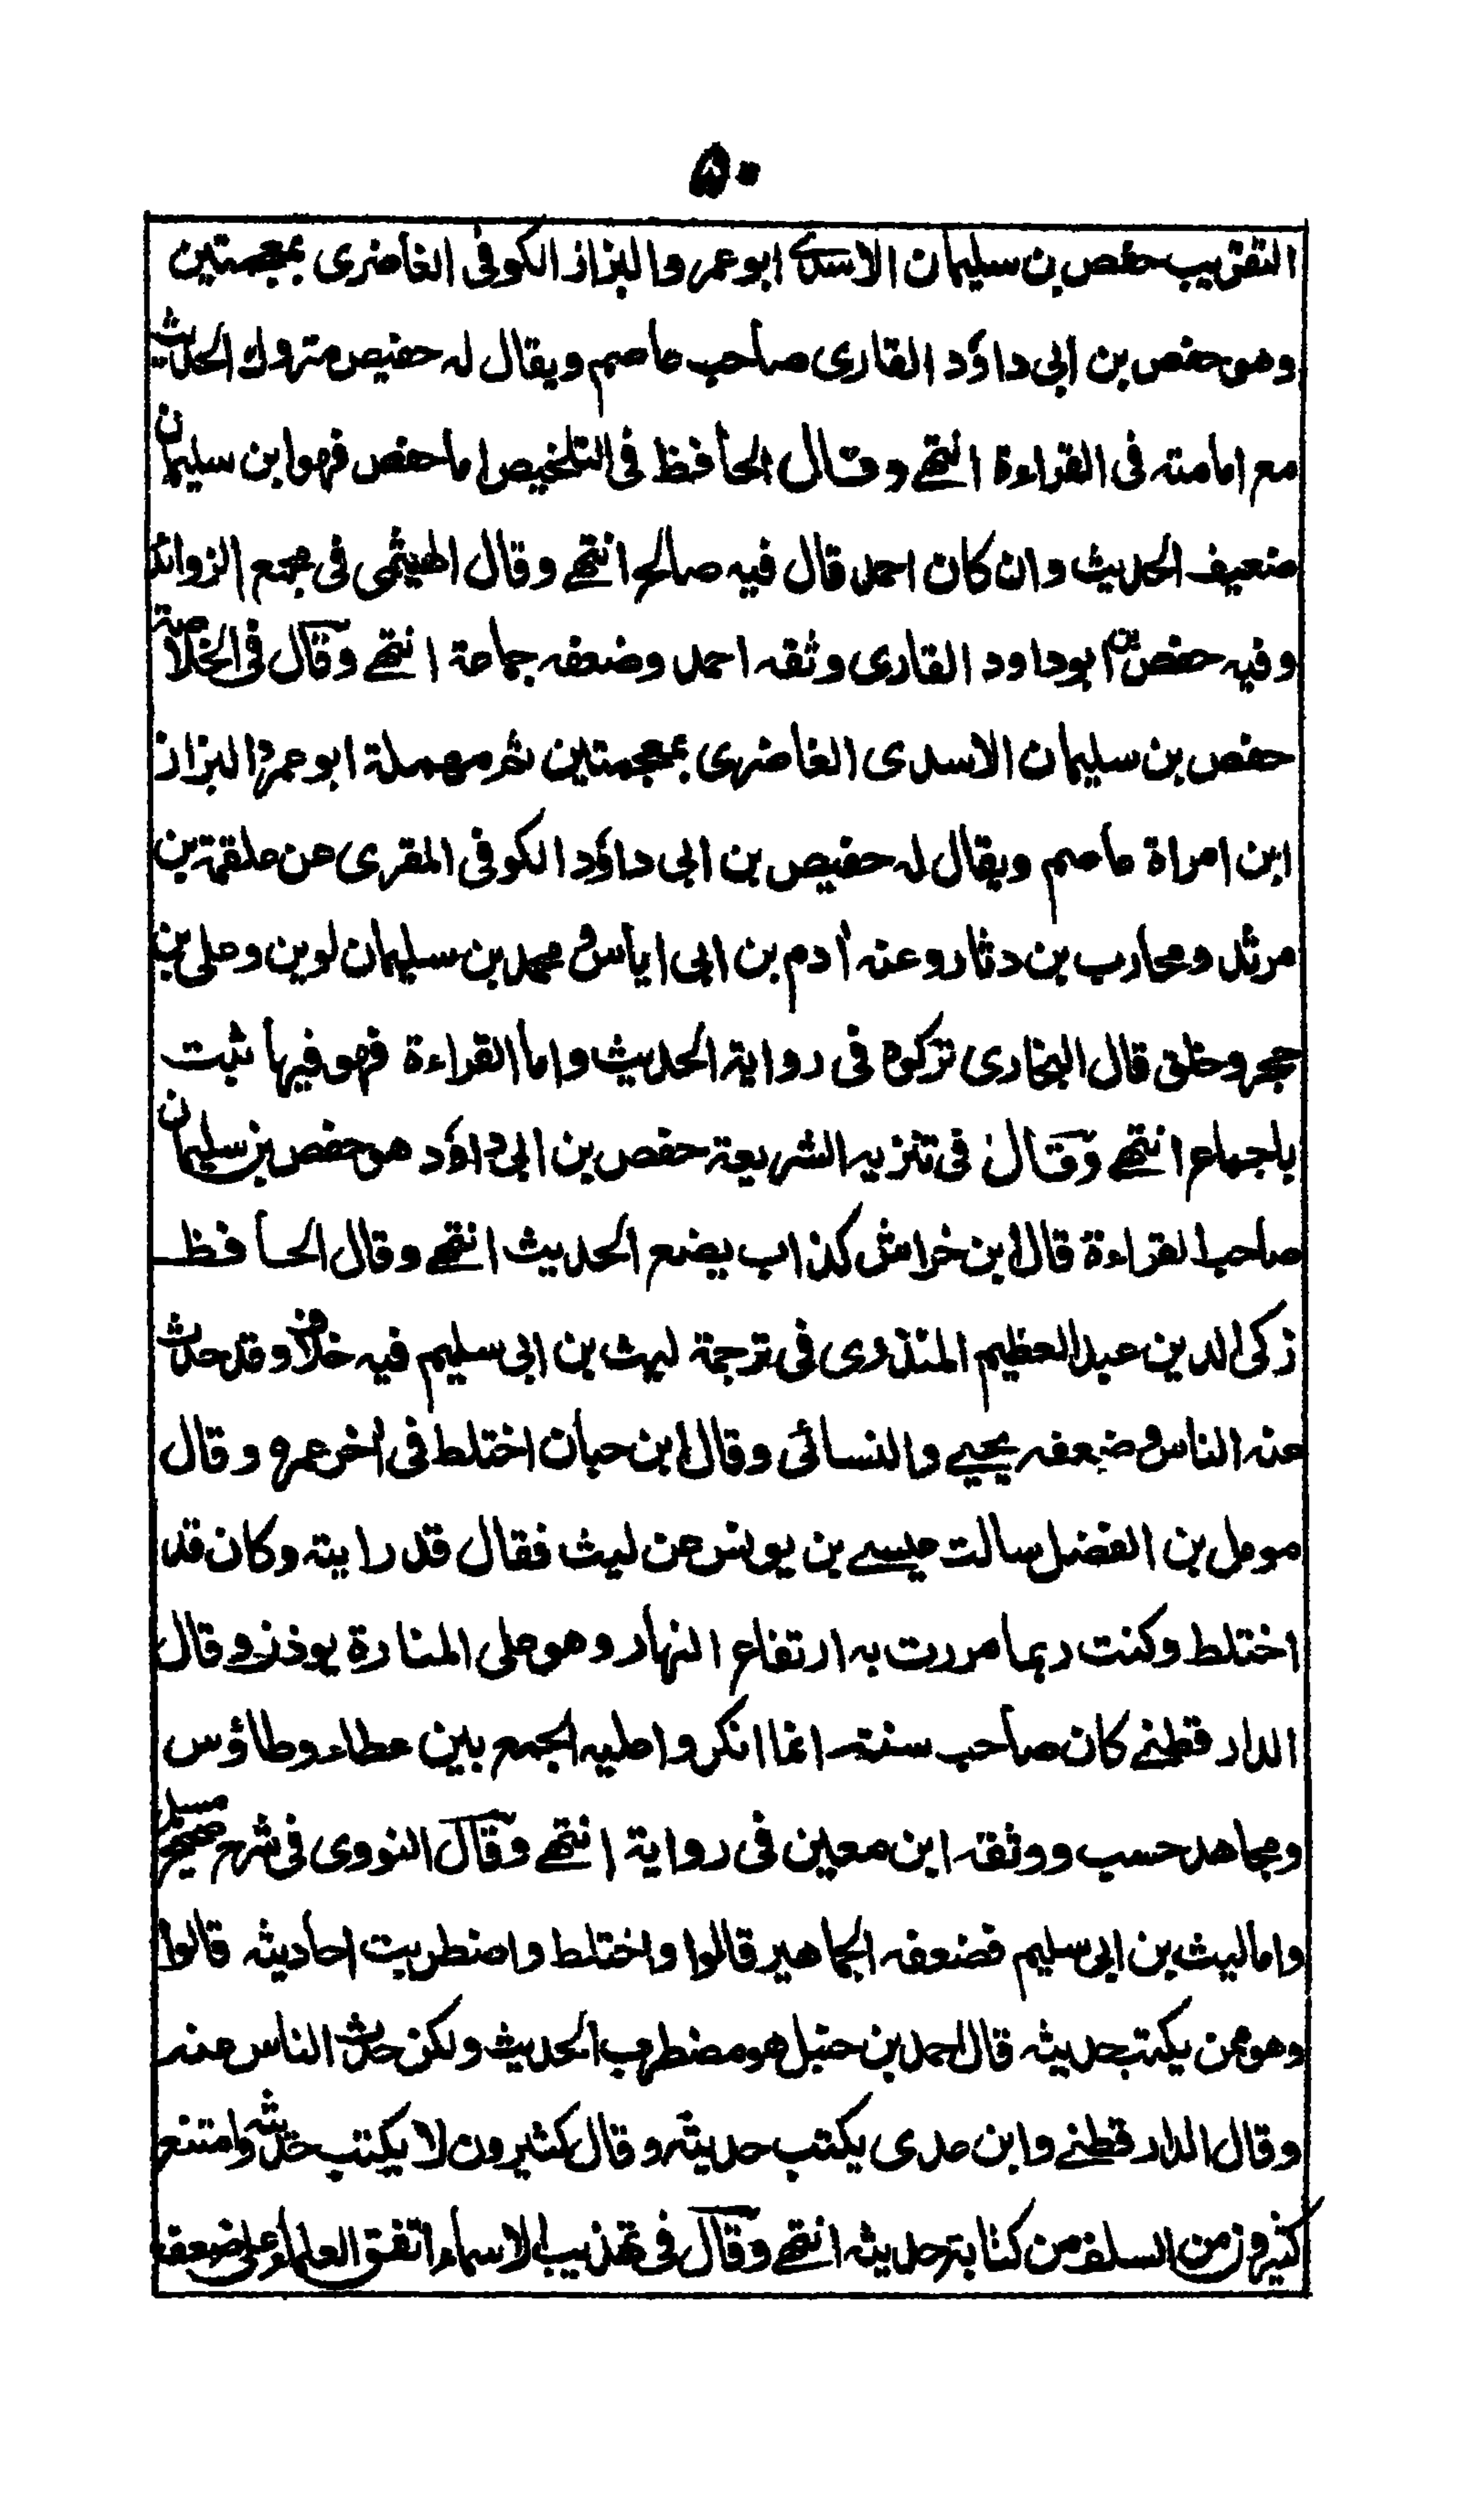 ٥٠
التقريب حفص بن سليمان الاسدى ابو عمر والبزاز الكوفى الغاضرى بمعجمتين
وهو حفص بن ابى داؤد القارى صاحب عاصم ويقال له حفيص متروك الحديث
مع امامته فى القراءة انتهے وقال الحافظ فى التلخيص اما حفص فهو ابن سليمان
ضعيف الحديث وان كان احمد قال فيه صالح انتهے وقال الهيثمى فى مجمع الزوائد
وفيه حفص بن ابو داود القارى وثقه احمد وضعفه جماعة انتهے وقال فى الخلاصة
حفص بن سليمان الاسدى الغاضرى بمعجمتين ثم مهملة ابو عمرو البزاز
ابن امراة عاصم ويقال له حفيص بن ابى داؤد الكوفى المقرى عن علقمة بن
مرثد ومحارب بن دثار وعنه أدم بن ابى اياس ومحمد بن سليمان لوين وعلى بن
حجر وخلق قال البخارى تركوه فى رواية الحديث واما القراءة فهو فيها ثبت
باجماع انتهے وقال فى تنزيه الشريعة حفص بن ابى داؤد هو حفص بن سليمان
صاحب القراءة قال ابن خراش كذاب يضع الحديث انتهے وقال الحافظ
زكى الدين عبد العظيم المنذرى فى ترجمة ليث بن ابى سليم فيه خلاف وقد حدث
عنه الناس وضعفه يحيے والنسائى وقال ابن حبان اختلط فى أخر عمره وقال
مومل بن الفضل سالت عيسے بن يونس عن ليث فقال قد رايته وكان قد
اختلط وكنت ربما مررت به ارتفاع النهار وهو على المنارة يوذن وقال
الدارقطنے كان صاحب سنة انما انكروا عليه الجمع بين عطاء وطاؤس
ومجاهد حسب ووثقه ابن معين فى رواية انتهے وقال النووى فى شرح صحيح مسلم
واما ليث بن ابى سليم فضعفه الجماهير قالوا واختلط واضطربت احاديثه قالوا
وهو ممن يكتب حديثه قال احمد بن حنبل هو مضطرب الحديث ولكن حدث الناس عنه
وقال الدارقطنے وابن عدى يكتب حديثه وقال كثيرون لا يكتب حديثه وامتنع
كثيرون من السلف من كتابة حديثه انتهے وقال فى تهذيب الاسماء اتفق العلماء على ضعفه